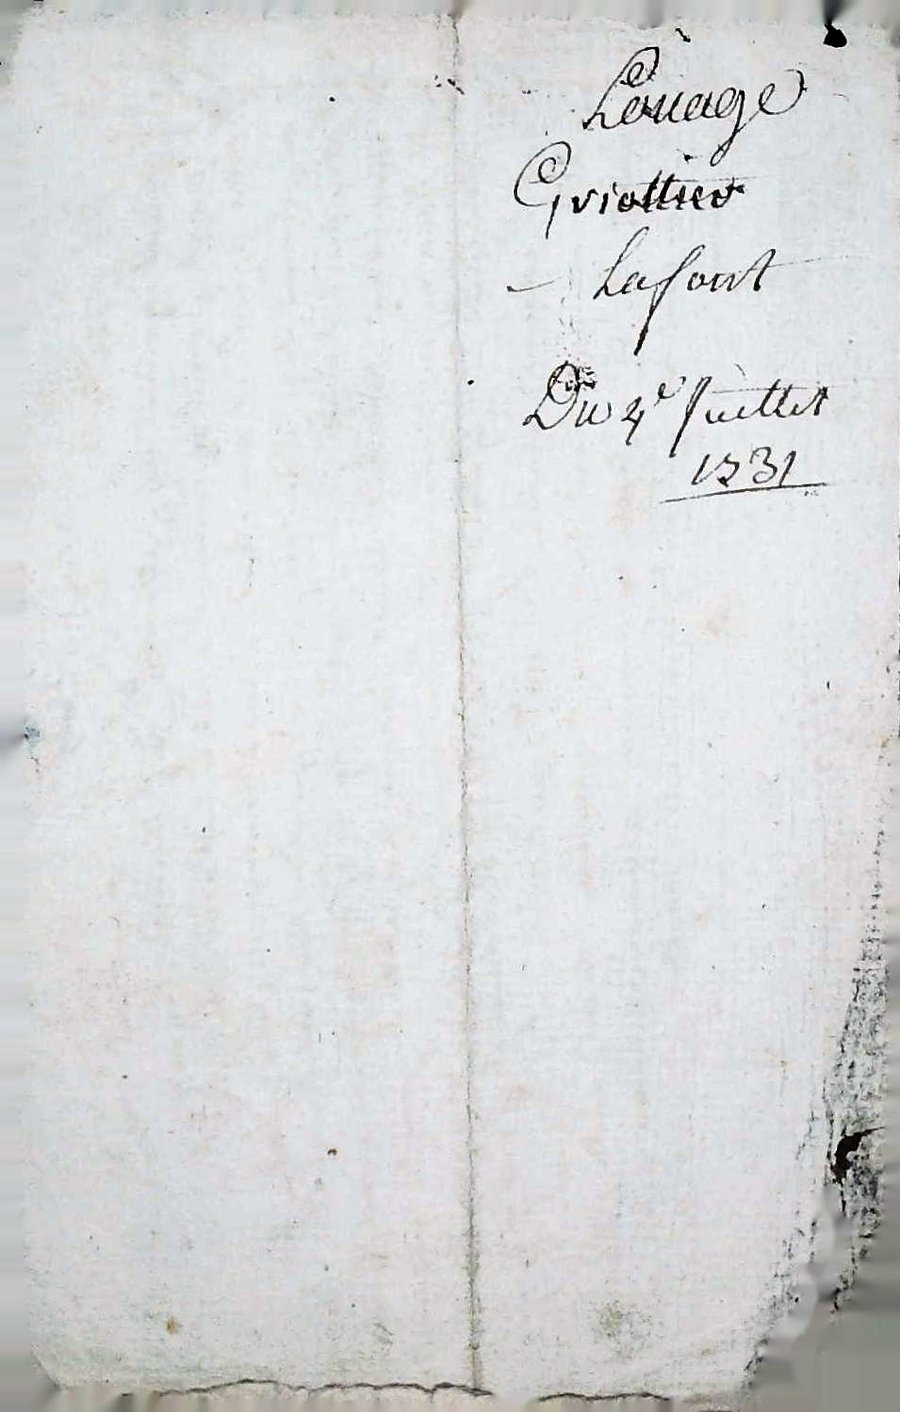 Loüage
Griottier
- Lafont
Du 4e Juillet
1731